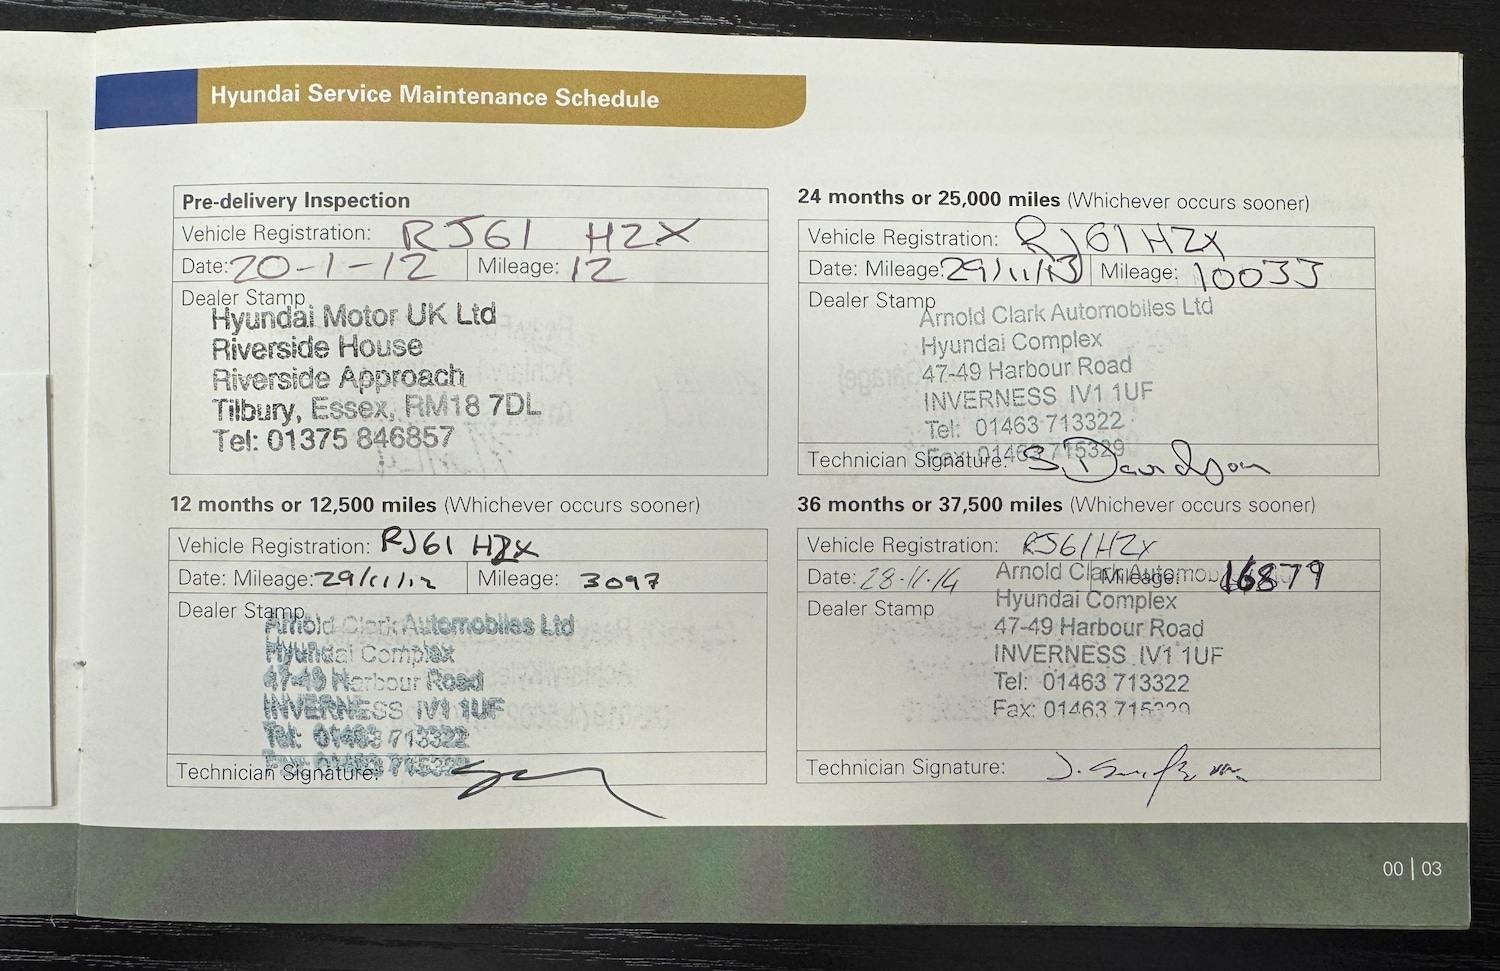 Hyundai Service Maintenance Schedule
Pre-delivery Inspection
Vehicle Registration: RJ61 HZX
Date: 20-1-12 Mileage: 12
Dealer Stamp
Hyundai Motor UK Ltd
Riverside House
Riverside Approach
Tilbury, Essex, RM18 7DL
Tel: 01375 846857
12 months or 12,500 miles (Whichever occurs sooner)
Vehicle Registration: RJ61 HZX
Date: Mileage: 29/11/12 Mileage: 3097
Dealer Stamp
Arnold Clark Automobiles Ltd
Hyundai Complex
47-49 Harbour Road
INVERNESS IV1 1UF
Tel: 01463 713322
Fax: 01463 715329
Technician Signature:
24 months or 25,000 miles (Whichever occurs sooner)
Vehicle Registration: RJ61 HZX
Date: Mileage: 29/11/13 Mileage: 10033
Dealer Stamp
Arnold Clark Automobiles Ltd
Hyundai Complex
47-49 Harbour Road
INVERNESS IV1 1UF
Tel: 01463 713322
Fax: 01463 715329
Technician Signature: S Davidson
36 months or 37,500 miles (Whichever occurs sooner)
Vehicle Registration: RJ61 HZX
Date: 28.11.14 Mileage: 16879
Dealer Stamp
Arnold Clark Automo
Hyundai Complex
47-49 Harbour Road
INVERNESS IV1 1UF
Tel: 01463 713322
Fax: 01463 715329
Technician Signature:
00 | 03